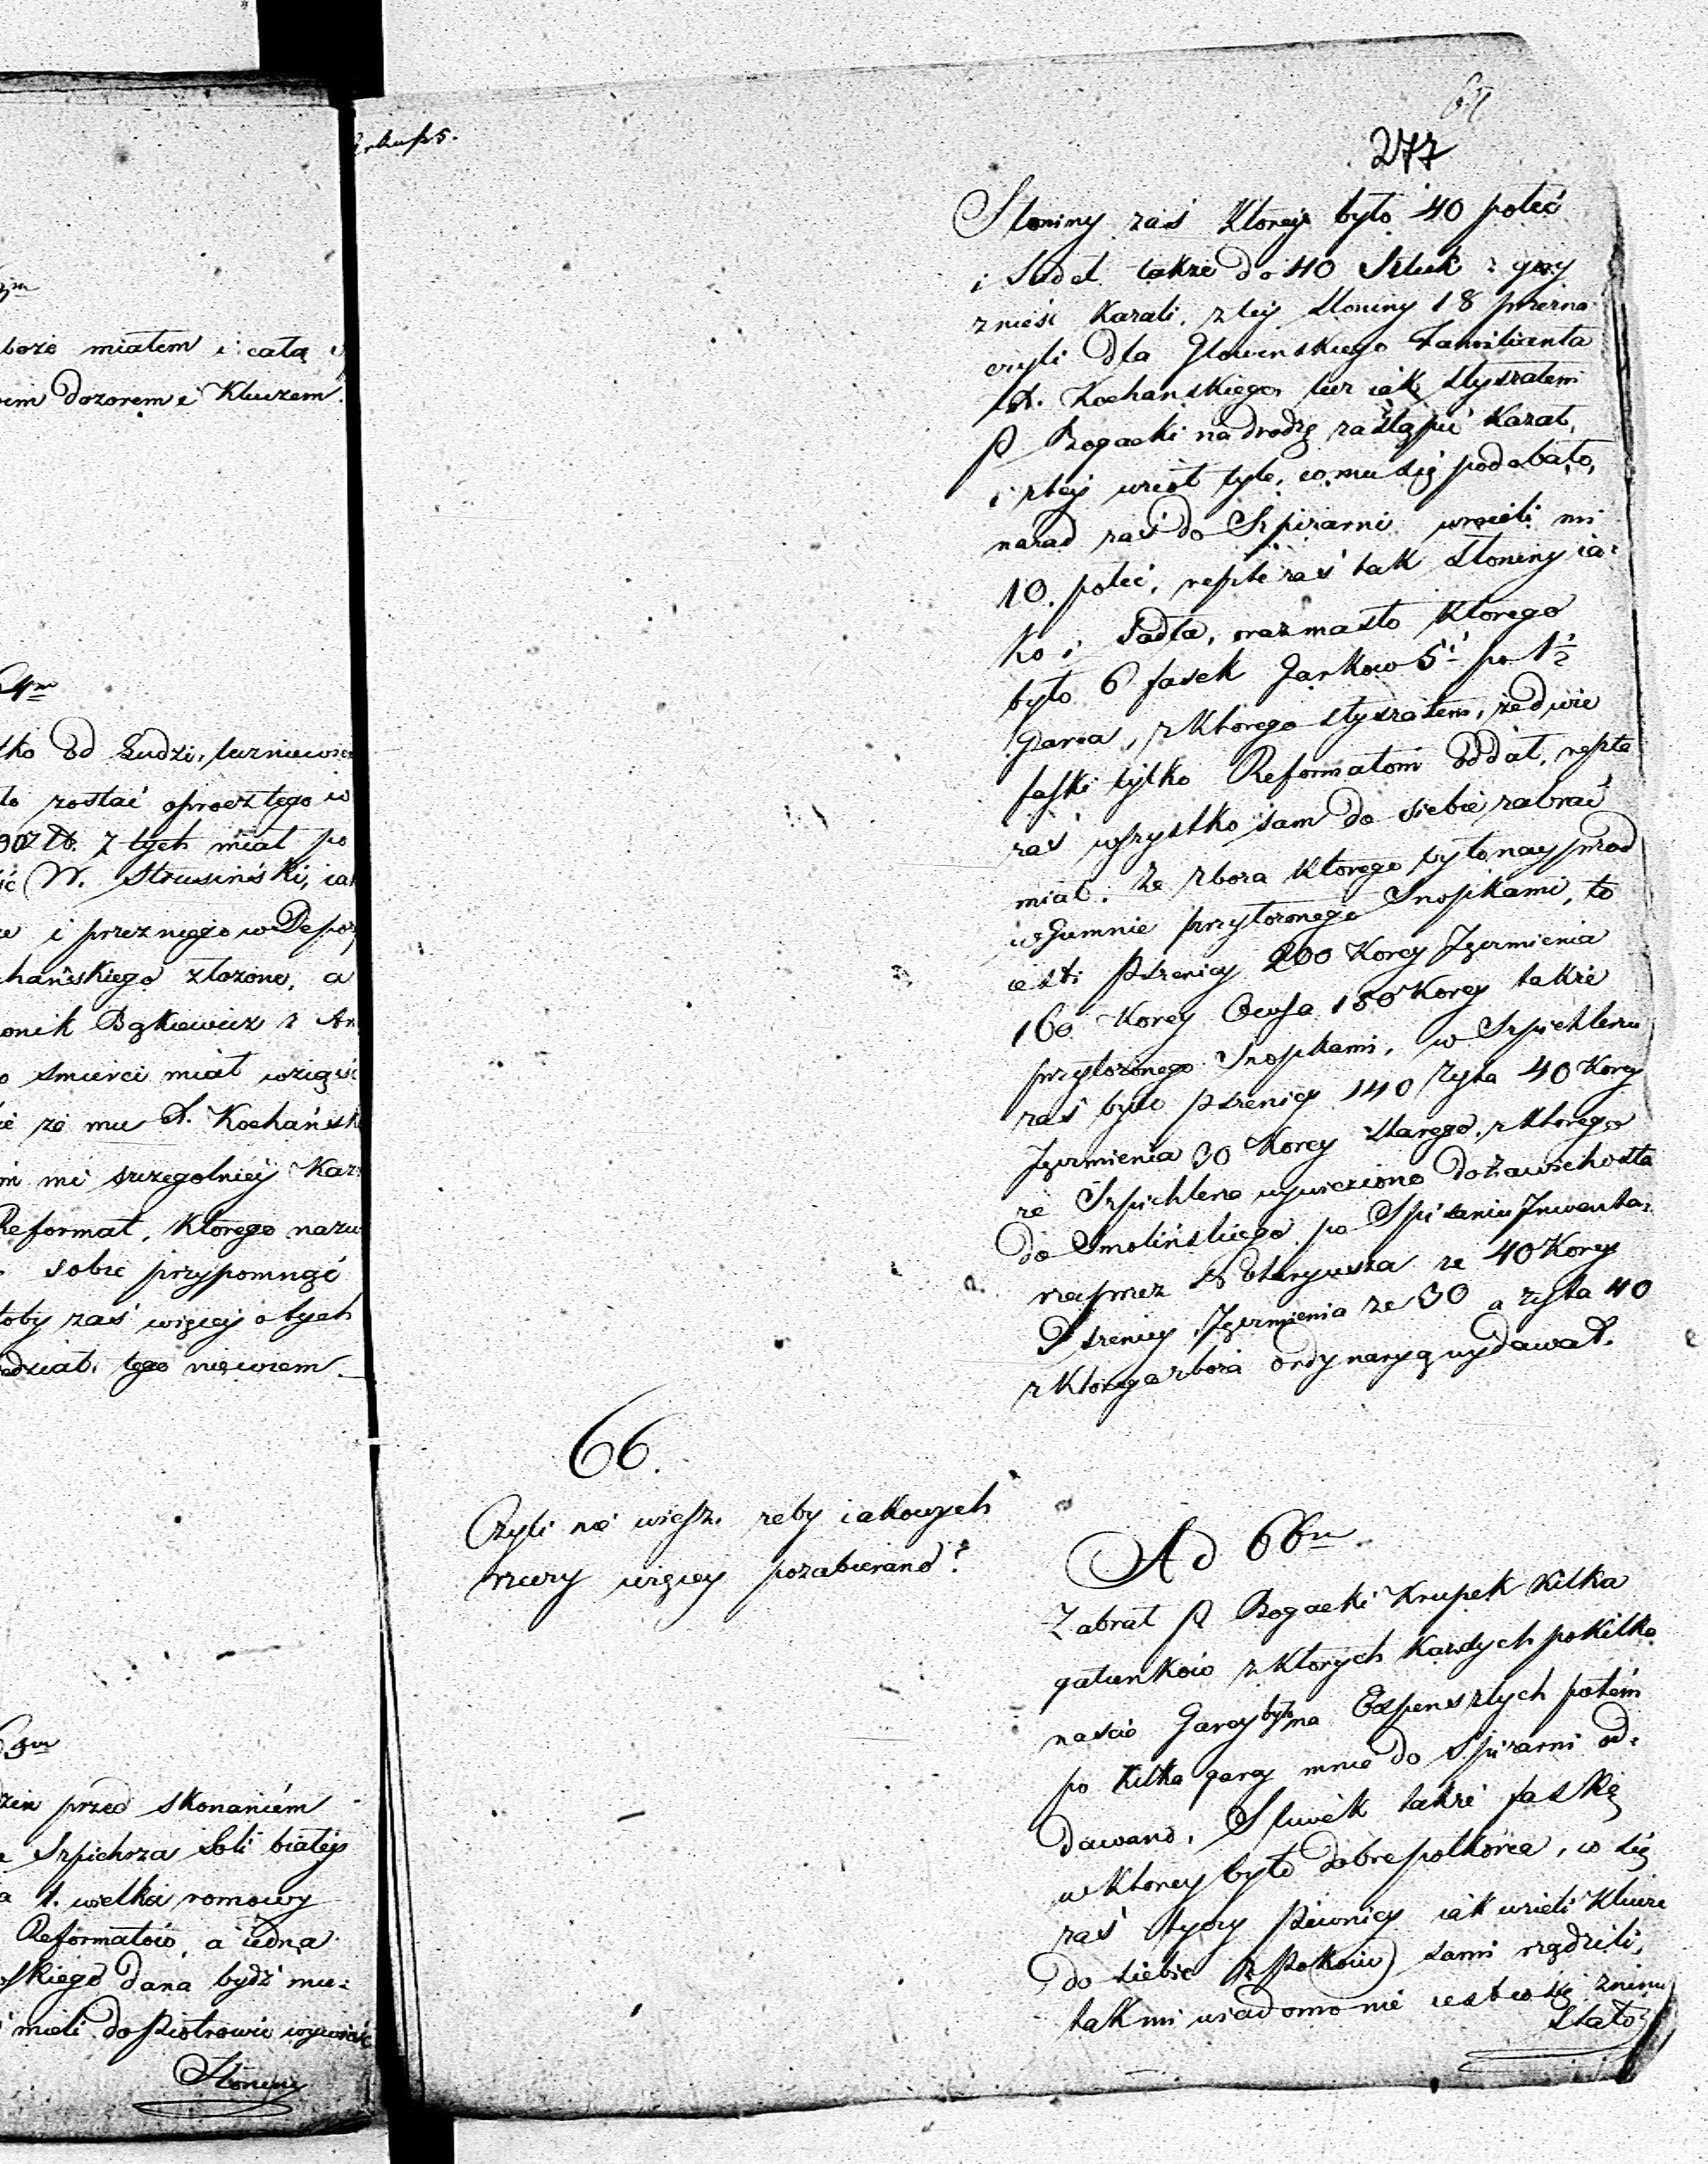 boże miałem i całą
dozorem i Kluczem.
64m
od Ludzi,
to zostać oprocz tego w
z tych miał po
W. Strusiński, iak
i przez niego w
złożone, a
Bąkiewicz z
smierci miał wziąść
że mu X. Kochański
mi szczegolniey
Reformat, ktorego
sobie przypomnąć
zaś więcey o tych
tego niewiem.
przed skonaniem
Szpichrza Soli białey
1. wielka
Reformatow, a iedna
dana bydź mu=
mieli do Piotrowic
Słoniny
Arkusz 5.
277
Słoniny zaś ktorey było 40 połeć
i Sadeł także do 40 Sztuk z gory
znieść kazali, z tey Słoniny 18 przezna
czyli dla Głowinskiego Familianta
X. Kochanskiego, lecz iak słyszałem
P Bogacki na drodzę zastąpić kazał,
i z tey wzioł tyle, co mu się podobało,
nazad zaś do Szpizarni wrocili mi
10. połeć, resztę zaś tak Słoniny ia=
ko i Sadła, oraz masło ktorego
było 6 fasek Garkow 5 po 1½
Garca, z ktorego słyszałem, że dwie
faski tylko Reformatom oddał, resztę
zaś wszystko sam do siebie zabrać
miał. Ze zboża ktorego było nayprzod
w Gumnie przyłożonego Snopkami, to
iest: Pszenicy 200 Korcy Jęczmienia
160 Korcy Owsa 150 Korcy także
przyłożonego Snopkami, w Szpichlerzu
zaś było Pszenicy 140 Żyta 40 Korcy
Jęczmienia 30 Korcy starego, z ktorego
ze Szpichlerza wywieziono do Zawichosta
do Smolińskiego po Spisaniu Jnwenta=
rza przez Notaryusza ze 40 Korcy
Pszenicy, Jęczmienia ze 30 a żyta 40
z ktorego zboża ordynaryą wydawał.
66.
Czyli nie wiesz, żeby iakowych
rzeczy więcey pozabierano?
Ad 66m
Zabrał P Bogacki Krupek kilka
gatunkow z ktorych każdych po kilka
naście Garcy było na Expens z tych potém
po kilka garcy mnie do Spizarni od=
dawano, Sliwek także faskę
w ktorey było dobre połkorca, co się
zaś tyczy Piwnicy iak wzieli klucze
do siebie z Pokoiu sami rządzili,
tak mi wiadomo nie iest co się z nimi
Stało